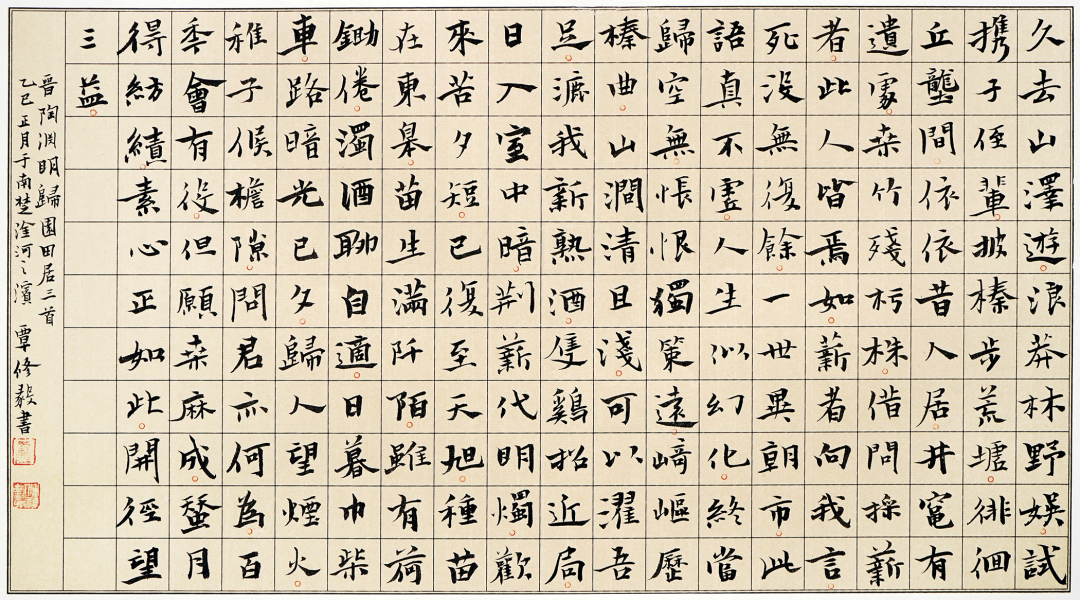 久去山澤遊浪莽林野娛試
携子侄輩披榛步荒墟徘徊
丘壟間依依昔人居井竈有
遺處桒竹殘朽株借問採薪
者此人皆焉如薪者向我言
死没無復餘一世異朝市此
語真不虛人生似幻化終當
歸空無悵恨獨策遠崎嶇歷
榛曲山澗清且淺可以濯吾
足漉我新熟酒隻鷄招近局
日入室中暗荆薪代明燭歡
來苦夕短已復至天旭種苗
在東皋苗生滿阡陌雖有荷
鋤倦濁酒聊自適日暮巾柴
車路暗光已夕歸人望煙火
稚子候檐隙問君亦何為百
秊會有役但願桒麻成蠶月
得紡績素心正如此開徑望
三益
晉陶渊明歸園田居三首
乙巳正月于南楚淦河之濱 覃修毅書